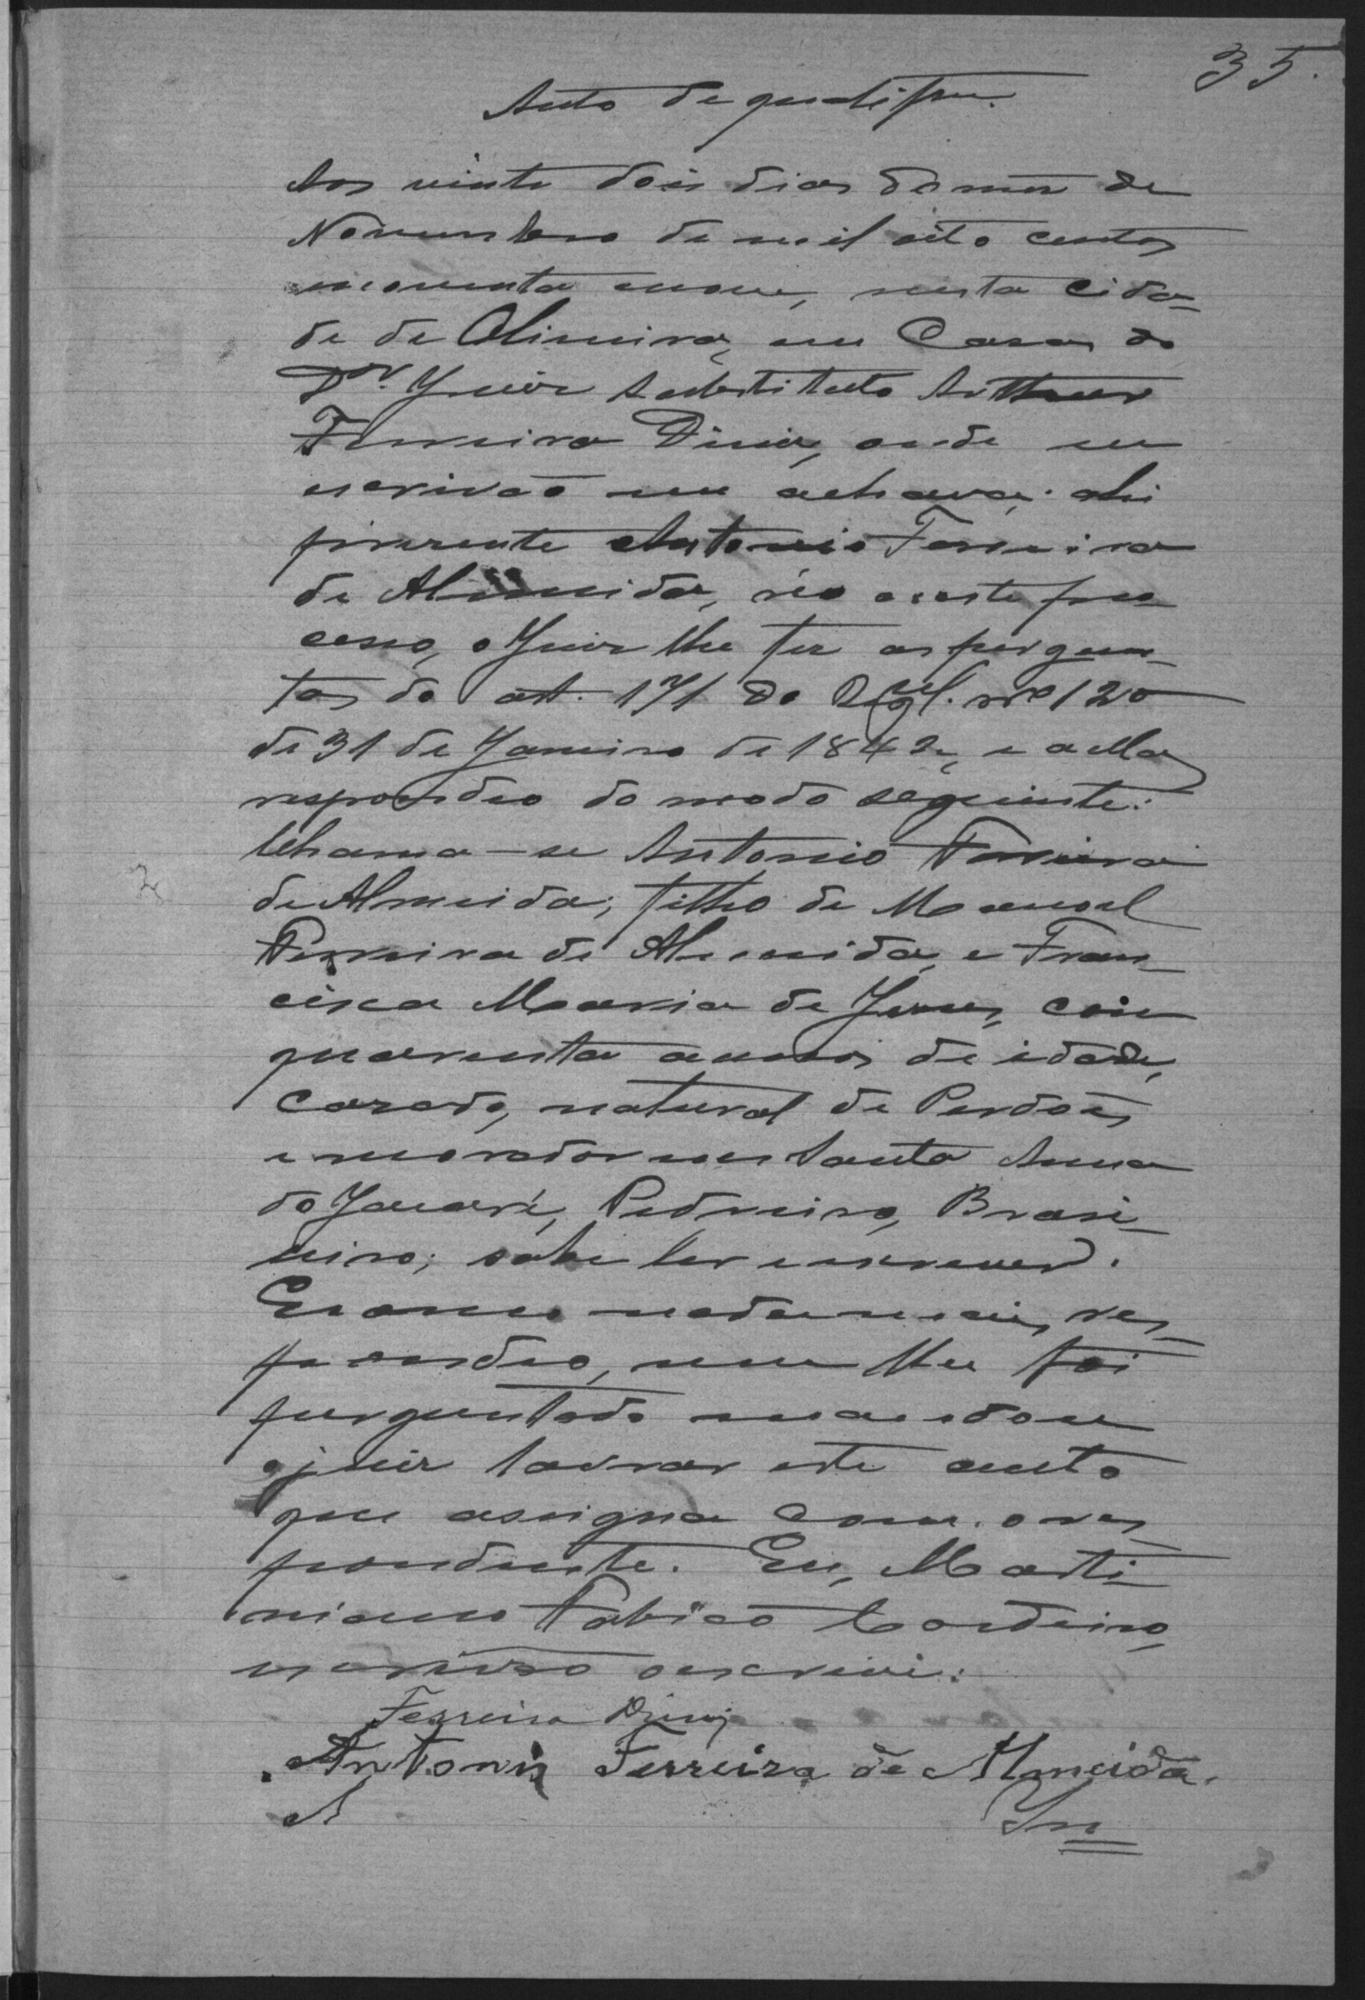 35.
Auto de qualifica.
Aos vinte dois dias do mes de
Novembro de mil oito centos
noventa e nove, nesta cida-
de de Oliveira, em Casa do
Dor. Juiz Substituto Arthur
Ferreira Diniz, onde eu
escrivão me achava; ahi
presente Antonio Ferreira
de Almeida, réo neste pro
cesso, o Juiz lhe fez as pergun-
tas do art. 171 do Regl. nro 120
de 31 de Janeiro de 1842, e a ellas
respondeo do modo seguinte:
Chama-se Antonio Ferreira
de Almeida; filho de Manoel
Ferreira de Almeida, e Fran-
cisca Maria de Jesus, com
quarenta annos de idade,
Casado, natural de Perdões
e morador em Santa Anna
do Jacaré, Pedreiro, Brasi-
leiro; sabe ler e escrever.
E como nada mais res-
pondeo, nem lhe foi
perguntado mandou
o juiz lavrar este auto
que assigna com o res-
pondente. Eu, Marti-
niano Fabião Cordeiro,
escrivão o escrevi.
Ferreira Diniz
Antonio Ferreira de Almeida.